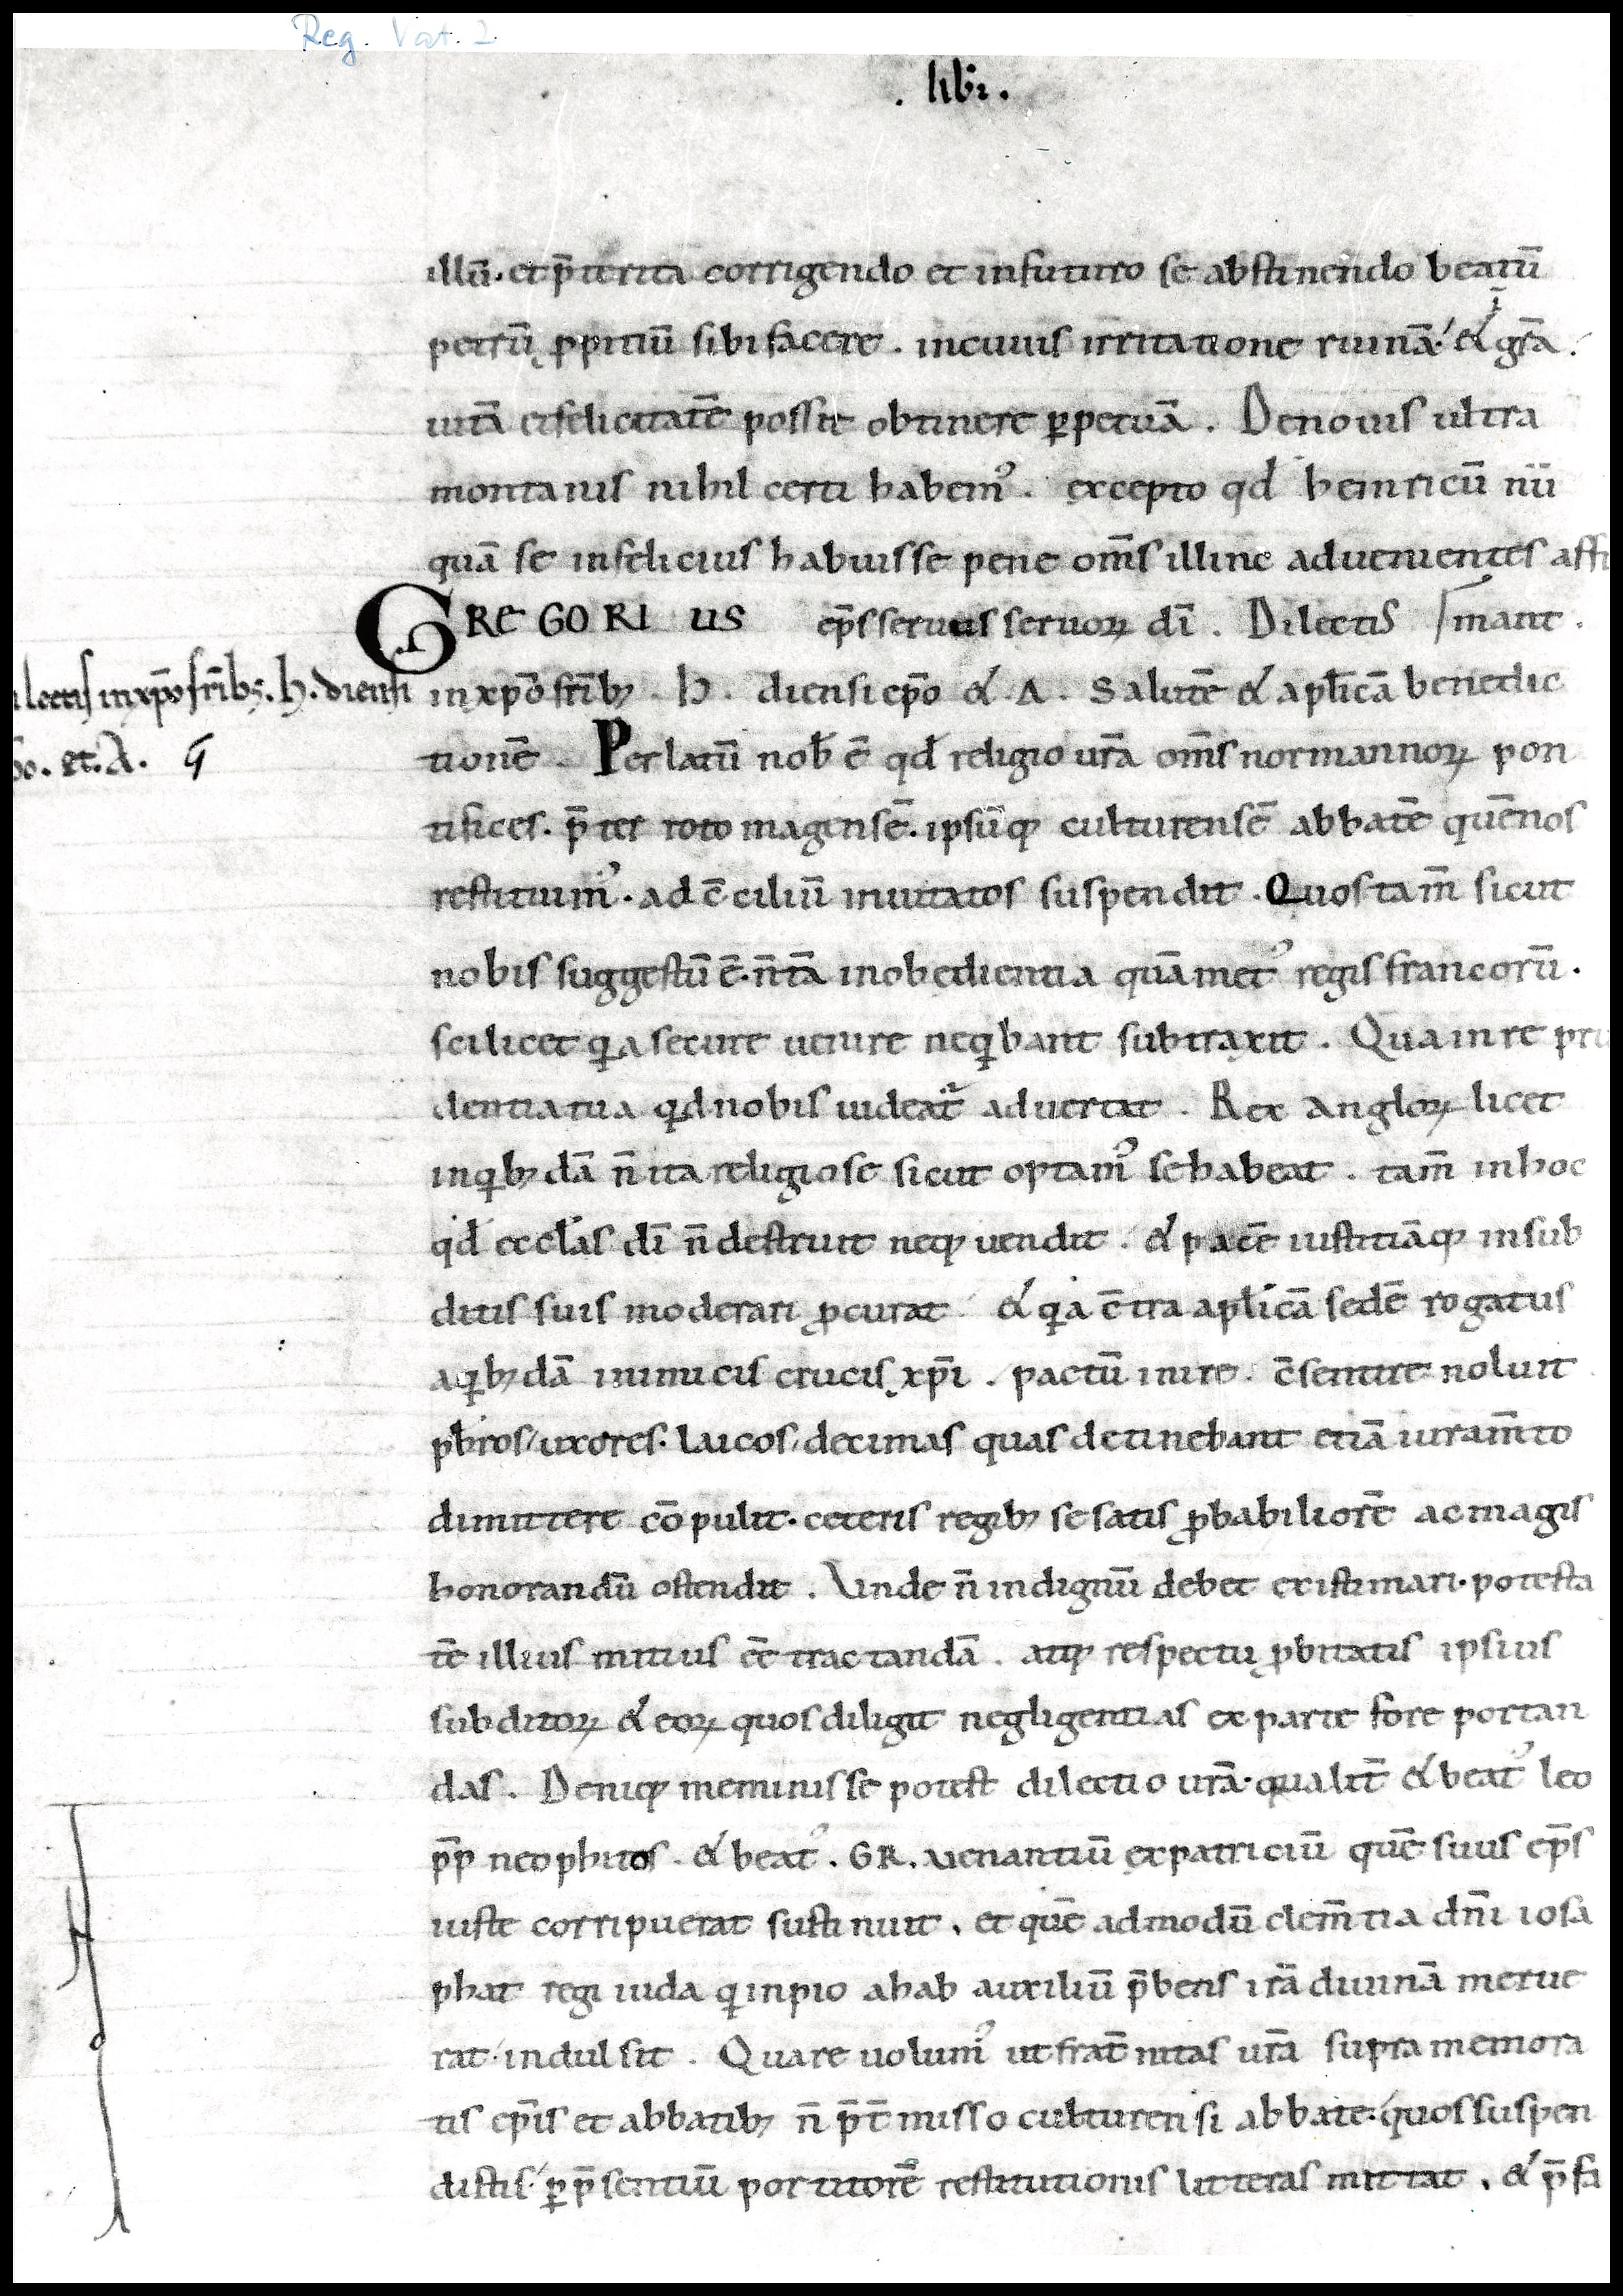 Reg. Vat. 2
. libꝛ .
illū. et p̄terita corrigendo et in futuro se abstinendo beatū
petrū ꝓpitiū sibi facere . in cuius irritatione ruinā. & gr̄a.
uitā et felicitatē possit obtinere ꝑpetuā . De nouis ultra
montanis nihil certi habemꝰ . excepto qd̄ heinricū nū
quā se infelicius habuisse pene om̄s illinc aduenientes affi
GREGORIUS ep̄s seruus seruoꝝ dī . Dilectis mant .
lectis in xp̄o fr̄ibꝫ . h . diensi
in xp̄o fr̄ibꝫ . h . diensi ep̄o & . A . Salutē & aplīcā benedic
po . et . A .
tionē . Perlatū nob̄ ē qd̄ religio ur̄a om̄s normannoꝝ pon
tifices . p̄ter rotomagensē . ipsūqꝫ culturensē abbatē quē nos
restituimꝰ . ad c̄ciliū inuitatos suspendit . Quos tam̄ sicut
nobis suggestū ē . n̄ tā inobedientia quā metꝰ regis francorū .
scilicet qͥa secure uenire neqͥbant subtraxit . Qua in re pru
dentia tua qͥd nobis uideat᷑ aduertat . Rex Angloꝝ licet
in qͥbꝫdā n̄ ita religiose sicut optamꝰ se habeat . tam̄ in hoc
qd̄ eccl̄as dī n̄ destruit neqꝫ uendit . & pacē iustitiāqꝫ in sub
ditis suis moderari ꝓcurat . & qͥa c̄tra apl̄icā sedē rogatus
a qͥbꝫdā inimicis crucis xp̄i . pactū inire . c̄sentire noluit
pb̄ros / uxores . laicos / decimas quas detinebant etiā iuram̄to
dimittere cōpulit . ceteris regibꝫ se satis ꝓbabiliorē ac magis
honorandū ostendit . Unde n̄ indignū debet existimari . potesta
tē illius mitius ēē tractandā . atqꝫ respectu ꝓbitatis ipsius
subditoꝝ & eoꝝ quos diligit negligentias ex parte fore portan
das . Deniqꝫ meminisse potest dilectio ur̄a . qualit̄ & beatꝰ leo
pp̄ neophitos . & beatꝰ . GR . uenantiū ex patriciū quē suus ep̄s
iuste corripuerat sustinuit . et quē admodū clem̄tia dn̄i iosa
phat regi iuda qͥ inpio ahab auxiliū p̄bens irā diuinā merue
rat / indulsit . Quare uolumꝰ ut frat̄nitas ur̄a supra memora
tis ep̄is et abbatibꝫ n̄ p̄t̄misso culturensi abbate . quos suspen
distis / ꝑ p̄sentiū portitorē restitutionis litteras mittat . & p̄fa